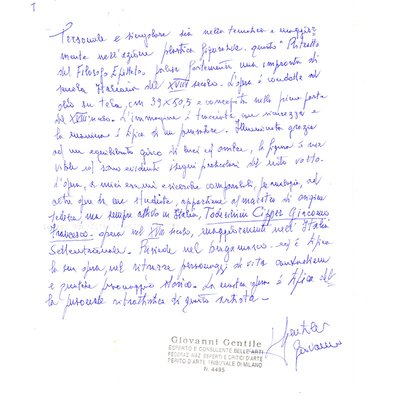 1
Personale e singolare sia nella tematica e maggior-
mente nell'azione plastica figurativa, questo "Ritratto
del Filosofo Epitteto, palesa fortemente una impronta di
scuola Italiana del XVIII secolo. L'opera è condotta ad
olio su tela, cm 39x50,5 e concepita nella prima parte
del XVIII secolo. L'immagine è tracciata con sicurezza e
la maniera è tipica di un Illuminata grazie
ad un equilibrato gioco di luci ed ombre, la figura
ed sono evidenti i segni particolari del suo volto.
L'opera, a miei esami e ricerche comparabili, per analogia, ad
altre opere da me studiate, appartiene al maestro di origine
tedesca, ma sempre attivo in Italia, Todeschini Cipper Giacomo
Francesco - opera nel XVIII secolo, maggiormente nell'Italia
Settentrionale. Risiede nel bergamasco - ed è tipica
la sua opera nel ritrarre personaggi di vita contadina
e qualche personaggio storico. La nostra opera è tipica del
la personale ritrattistica di questo artista -
Gentile
Giovanni
Giovanni Gentile
ESPERTO E CONSULENTE BELLE ARTI
FEDERAZ. NAZ. ESPERTI E CRITICI D'ARTE
PERITO D'ARTE TRIBUNALE DI MILANO
N. 4485